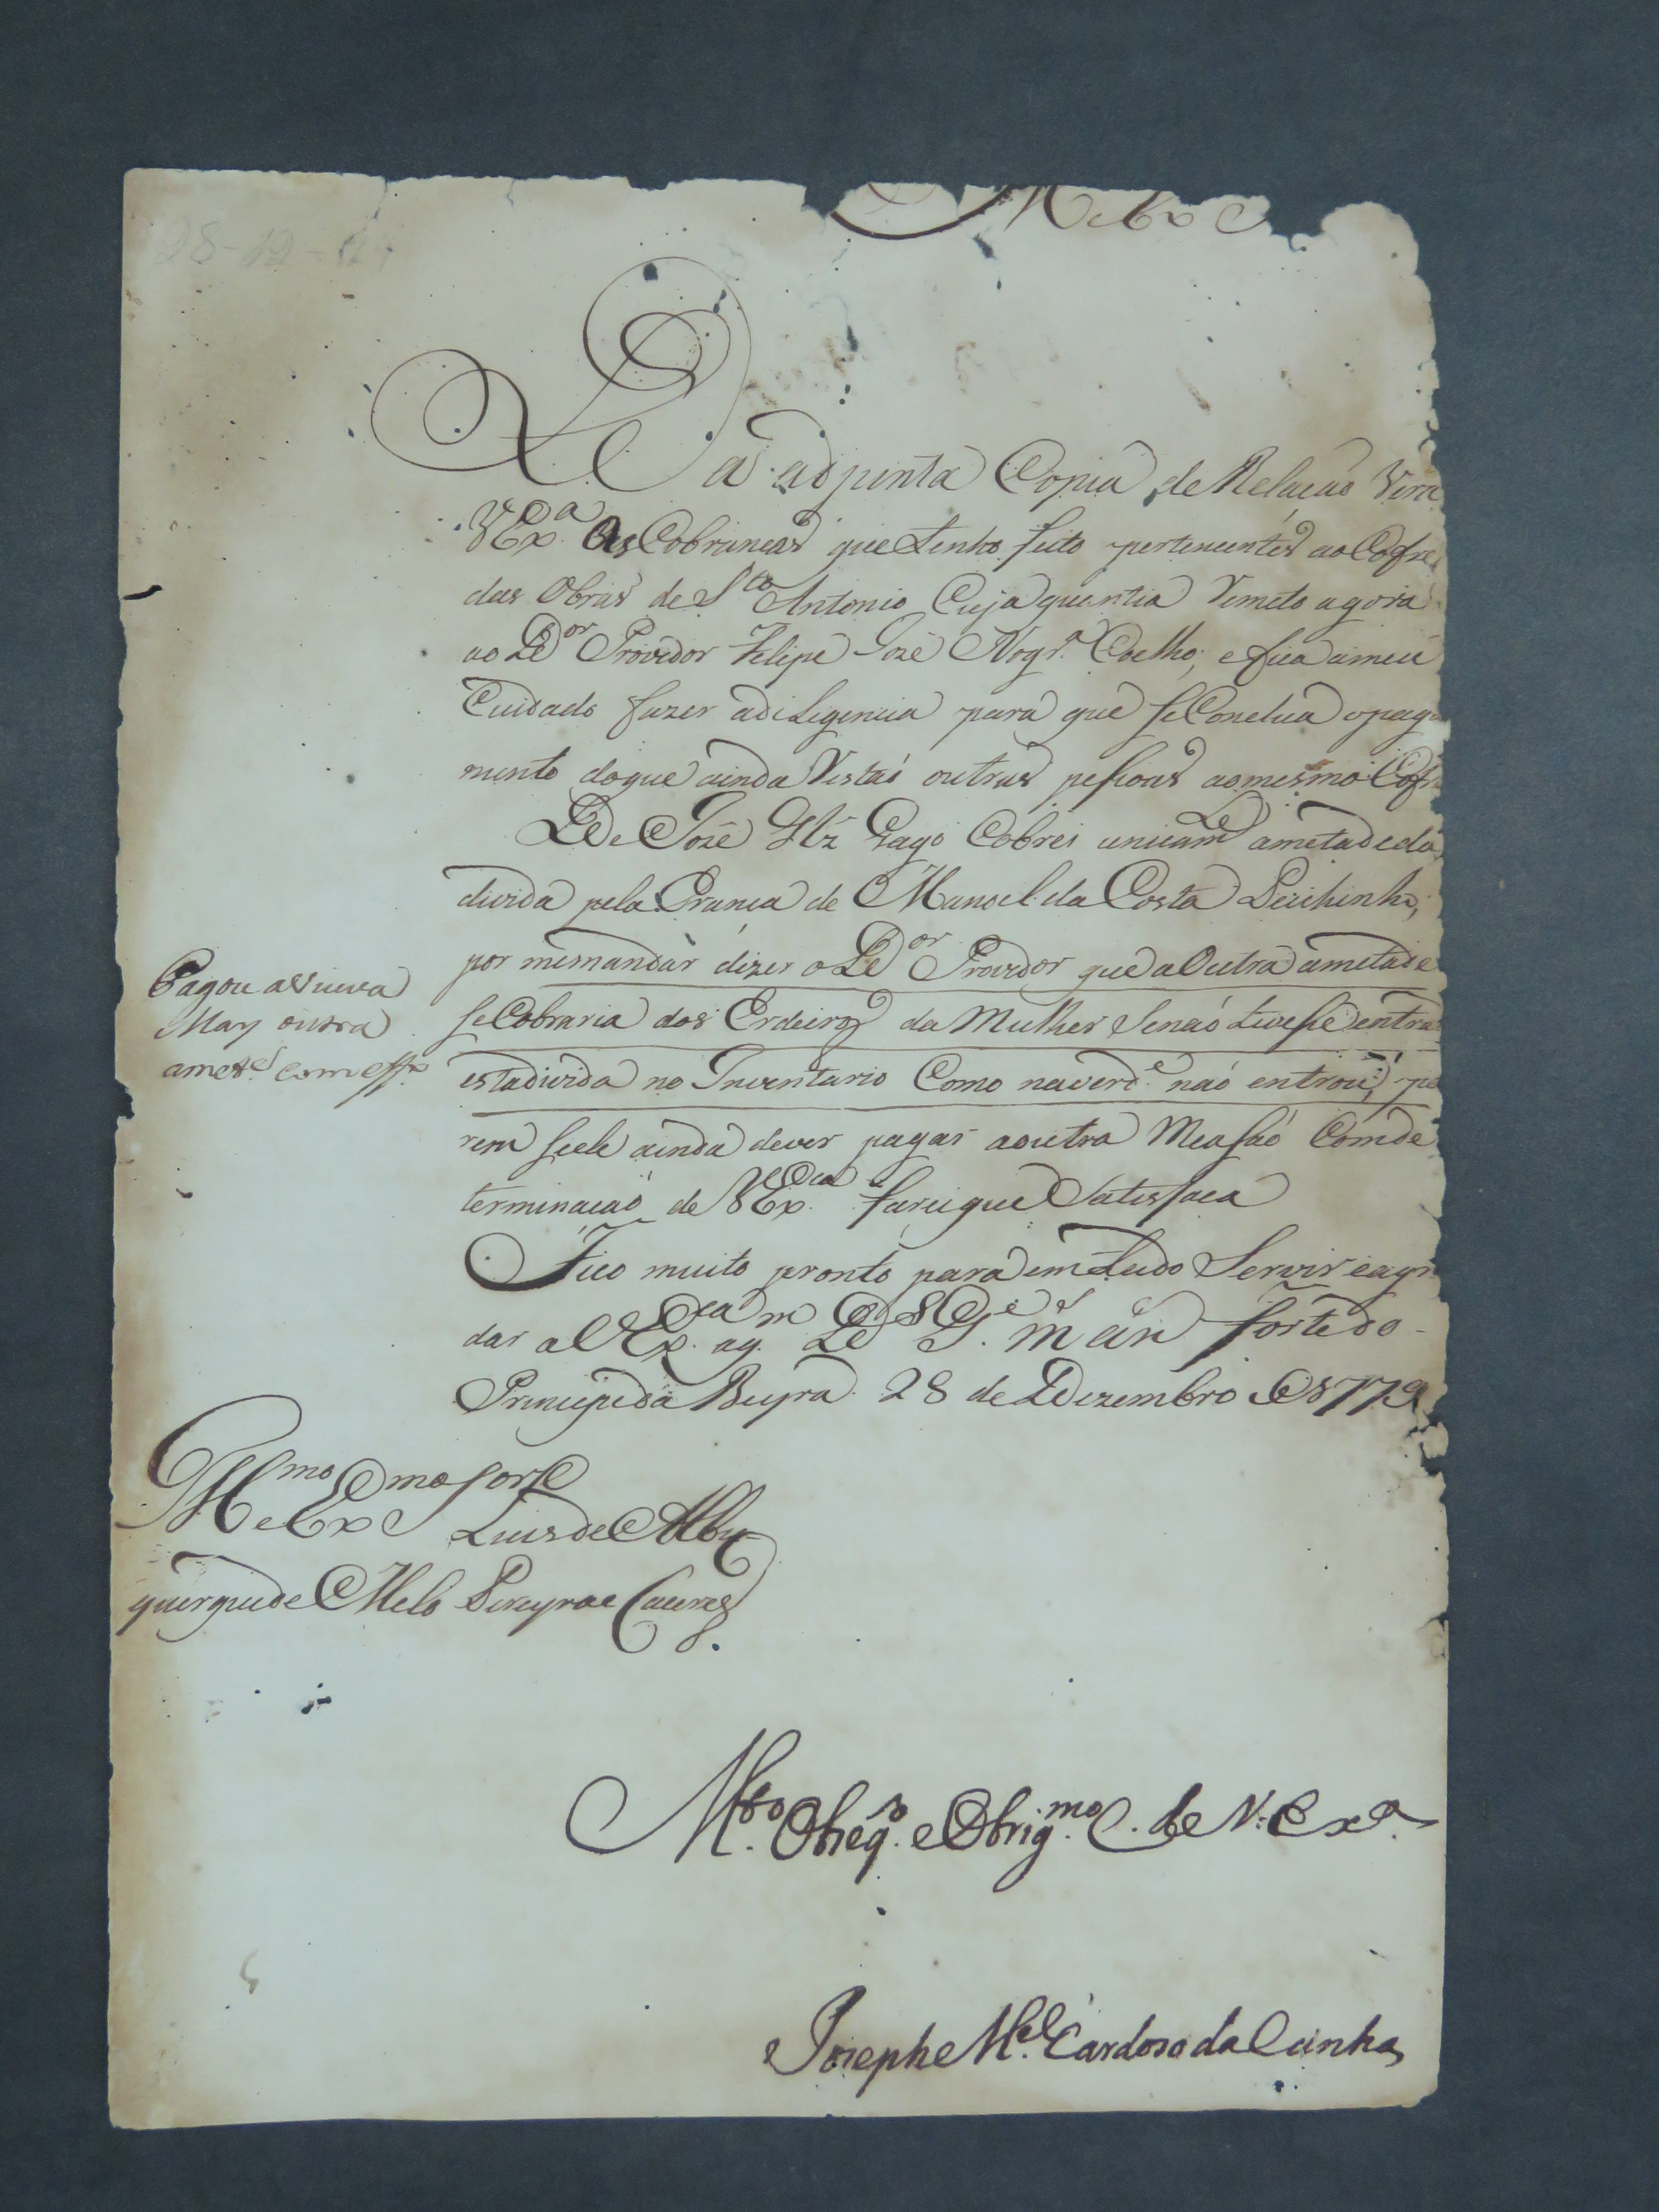 28-12-79
Ill e Ex S
Da adjunta Copia de Relaçaõ Verá
VExª. As Cobranças que tenho feito pertencentes ao Cofre
das Obras de Sto Antonio Cuja quantia Remeto agora
ao Dor Provedor Felipe Joze Nogrª. Coelho; e fica a meu
Cuidado fazer adiLigencia para que se Conclua opaga
mento doque ainda Restaõ outras pessoas aomesmo Cofre
De Joze Glz' Gago Cobrei unicamᵉ ametade da
divida pela Fiança de Manoel da Costa
por memandar dizer o Dor Provedor que a Outra ametade
se Cobraria dos Erdeiros da Mulher Senaõ tivesse entra
estadivida no Inventario Como naverdᵉ. naõ entrou; po
rem se ele ainda dever pagar aoutra Measaõ Comde
terminaçaõ de VExca. farei que Satisfaça
Fico muito pronto para em tudo Servir eagra
dar a VExca. aqm. Ds. Gᵉ. ms. ans. forte do
Principeda Beyra 28 de Dezembro de 1779
Pagou a viuva
May outra
ametᵉ. com effº
Illmo e Exmo Sor
Luis de Albu
querque de Melo Pereyra e Caceres
Mto. Obseqo. e Obrigmo. C. de V. Exª.
Joseph Mel. Cardoso da Cunha